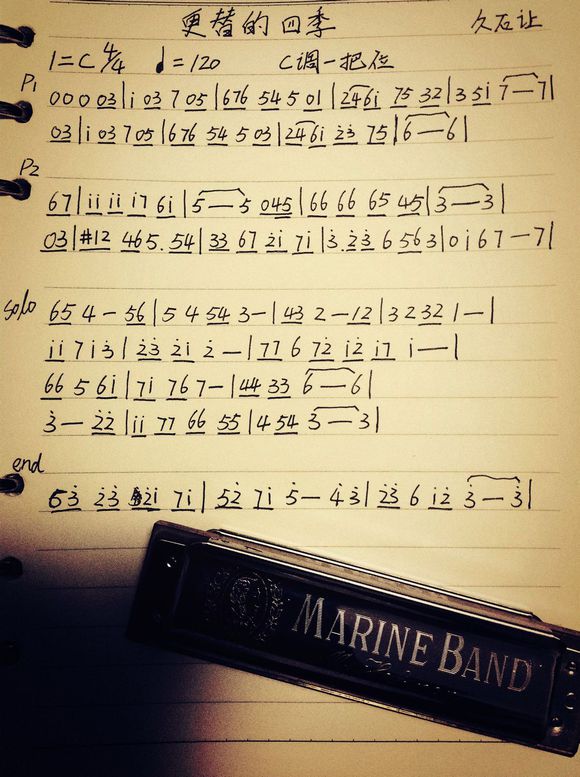 更替的四季 久石让
1=C 4/4 ♩=120 C调一把位
P1 0 0 0 03|i̇ 03 7 05|676 54 5 01|246i̇ 75 32|3 5i̇ 7—7|
03|i̇ 03 7 05|676 54 5 03|246i̇ 2̇3̇ 75|6—6|
P2
67|i̇i̇ i̇i̇ i̇7 6i̇|5—5 045|66 66 65 45|3—3|
03|#12 465.54|33 67 2̇i̇ 7i̇|3̇.2̇3̇ 6 563|0 i̇ 6 7—7|
solo 65 4— 56|5 4 54 3—|43 2—12|3 2 32 1—|
i̇i̇ 7 i̇ 3̇|2̇3̇ 2̇i̇ 2̇—|77 6 72̇ i̇2̇ i̇7 i̇——|
66 5 6i̇|7i̇ 76 7—|44 33 6—6|
3̇— 2̇2̇|i̇i̇ 77 66 55|4 54 3—3|
end
53̇ 2̇3̇ 2̇i̇ 7i̇|52̇ 7i̇ 5̇— 4̇3̇|2̇3̇ 6 i̇2̇ 3̇—3̇|
MARINE BAND